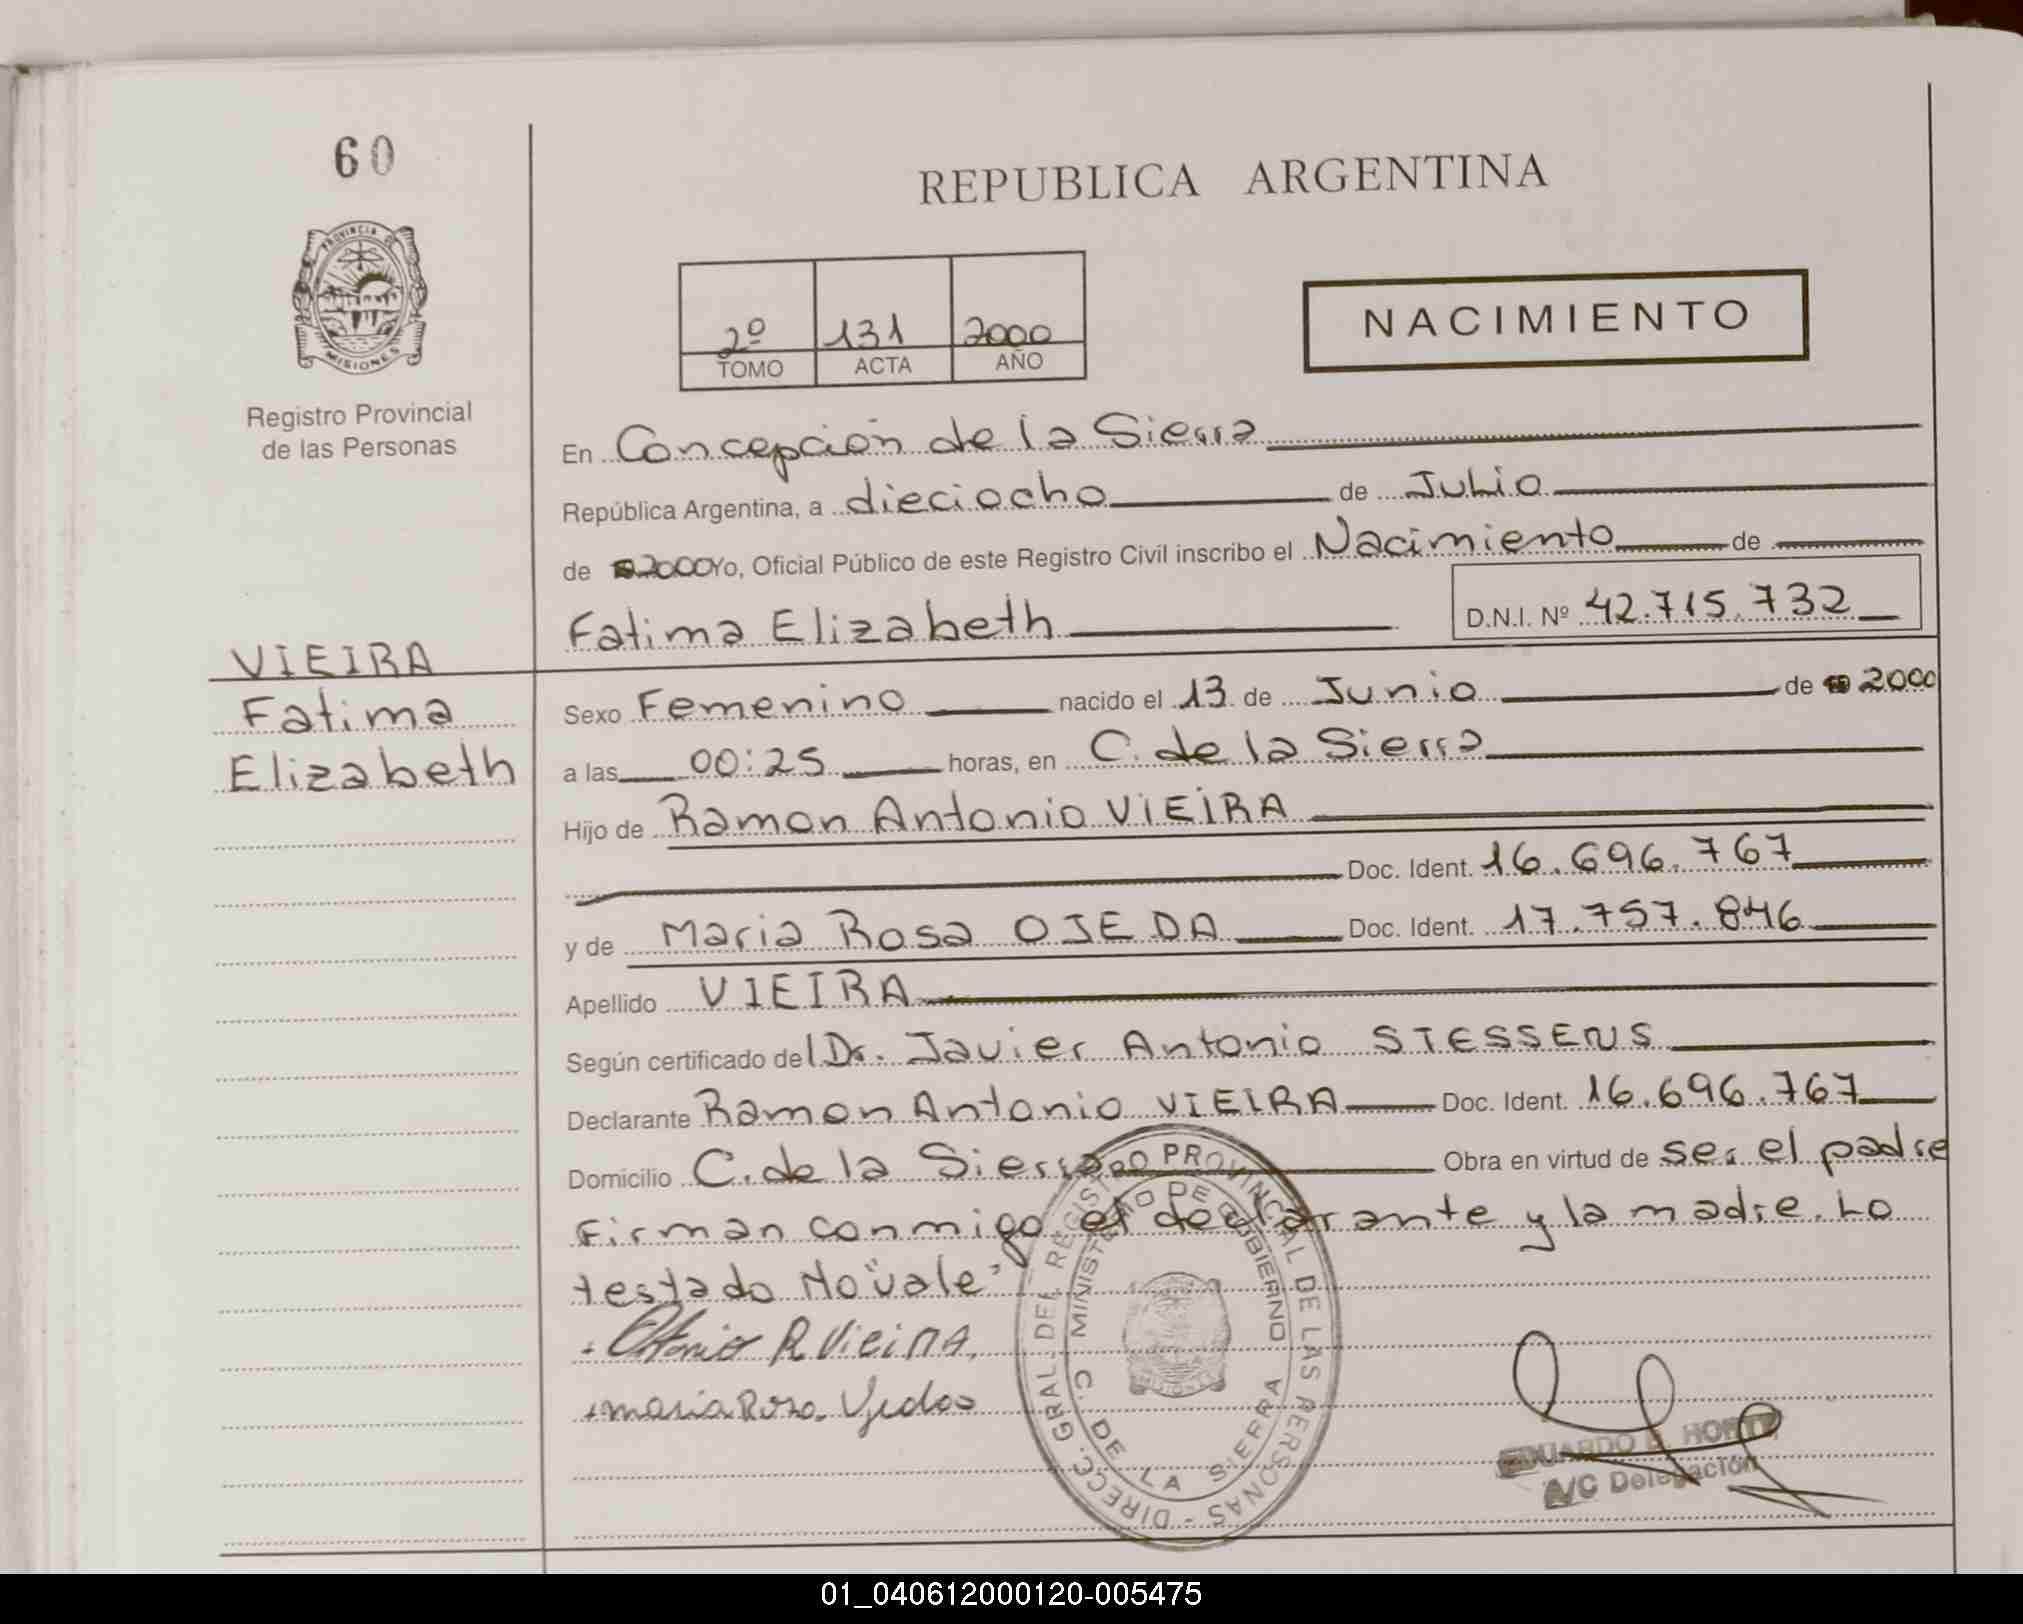 60
REPUBLICA ARGENTINA
PROVINCIA DE
MISIONES
2º 131 2000
TOMO ACTA AÑO
NACIMIENTO
Registro Provincial
de las Personas
En Concepción de la Sierra
República Argentina, a dieciocho de Julio
de 2000 Yo, Oficial Público de este Registro Civil inscribo el Nacimiento de
Fatima Elizabeth D.N.I. Nº 42.715.732
VIEIRA
Fatima
Elizabeth
Sexo Femenino nacido el 13 de Junio de 2000
a las 00:25 horas, en C. de la Sierra
Hijo de Ramon Antonio VIEIRA
Doc. Ident. 16.696.767
y de Maria Rosa OJEDA Doc. Ident. 17.757.846
Apellido VIEIRA
Según certificado del Dr. Javier Antonio STESSENS
Declarante Ramon Antonio VIEIRA Doc. Ident. 16.696.767
Domicilio C. de la Sierra Obra en virtud de ser el padre
Firman conmigo el declarante y la madre. Lo
testado No "vale"
Antonio R Vieira
maria Rosa Ojeda
DIRECC. GRAL. DEL REGISTRO PROVINCIAL DE LAS PERSONAS -
MINISTERIO DE GOBIERNO
C. DE LA SIERRA
MISIONES
EDUARDO
A/C Delegación
01_040612000120-005475